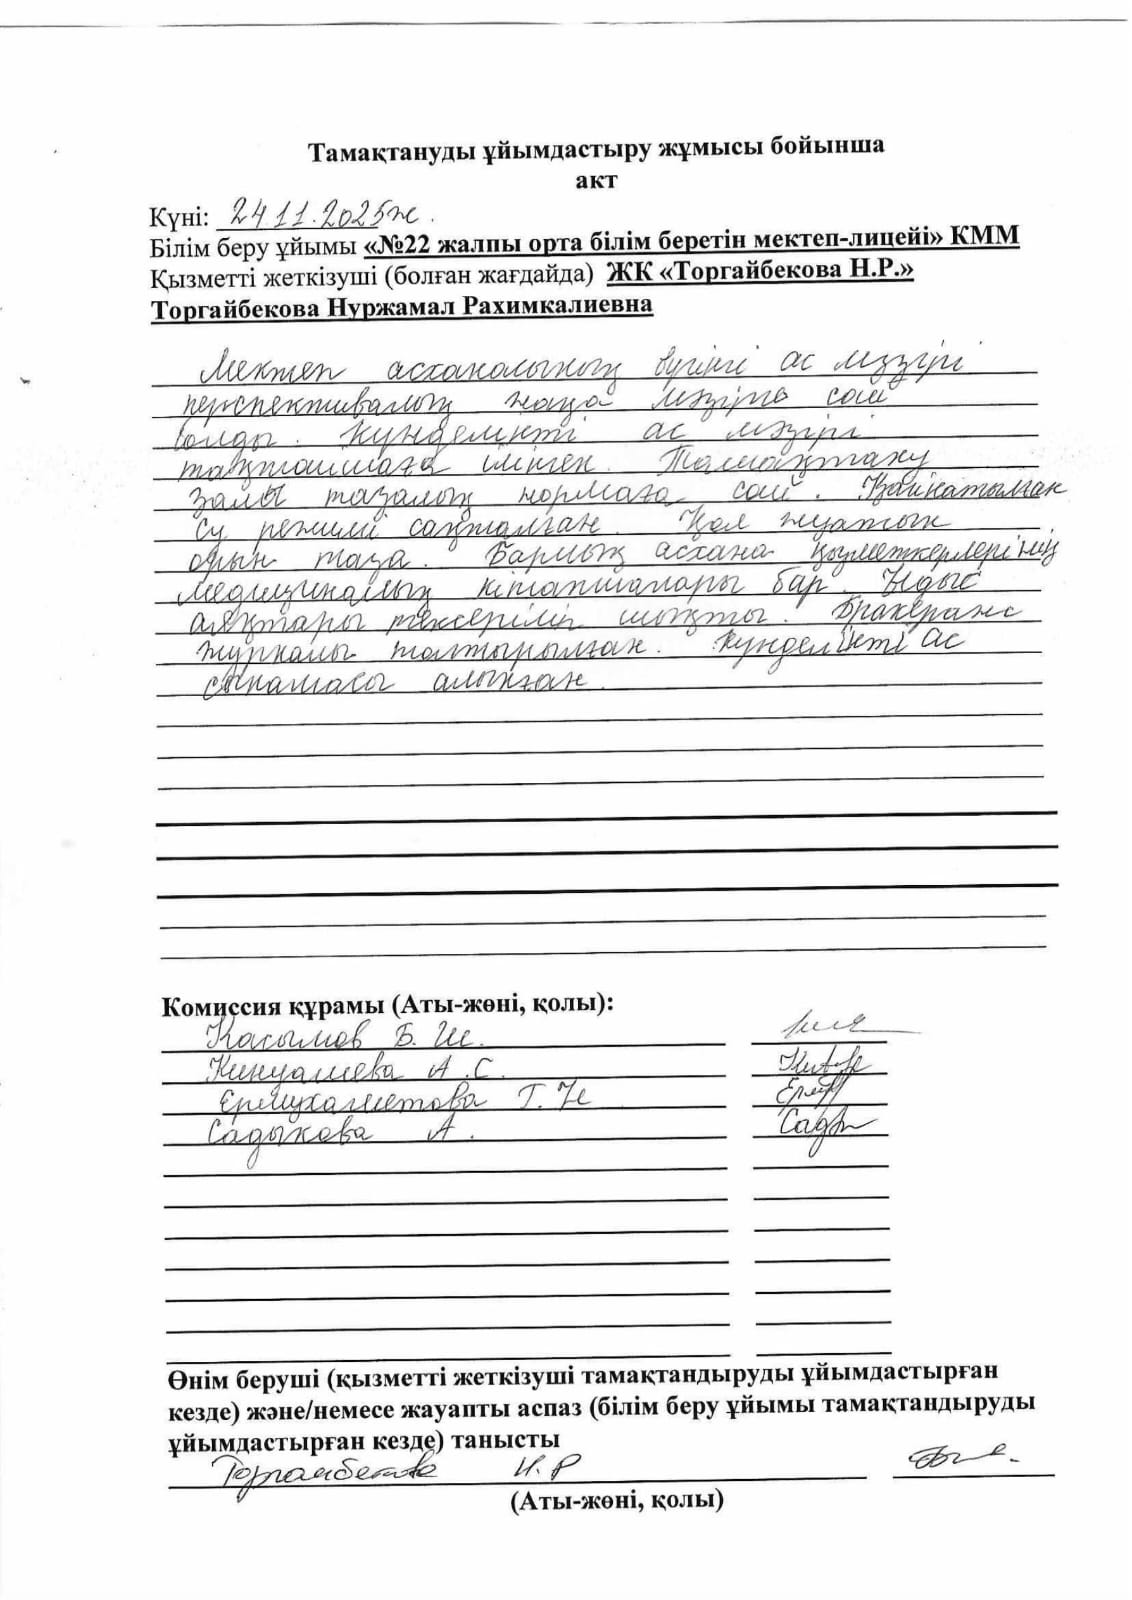 Тамақтануды ұйымдастыру жұмысы бойынша
акт
Күні: 24.11.2025ж.
Білім беру ұйымы «№22 жалпы орта білім беретін мектеп-лицейі» КММ
Қызметті жеткізуші (болған жағдайда) ЖК «Торгайбекова Н.Р.»
Торгайбекова Нуржамал Рахимкалиевна
Мектеп асханасының бүгінгі ас мәзірі
перспективалық жаңа мәзірге сай
болды. Күнделікті ас мәзірі
тақтайшаға ілінген. Тамақтану
залы тазалық нормаға сай. Қайнатылған
су режимі сақталған. Қол жуатын
орын таза. Барлық асхана қызметкерлерінің
медициналық кітапшалары бар. Ыдыс
аяқтары тексеріліп шықты. Бракераж
журналы толтырылған. Күнделікті ас
сынамасы алынған.
Комиссия құрамы (Аты-жөні, қолы):
Касымов Б. Ш.
Кинуашева А.С.
Ермухаметова Г. Н
Садыкова А.
Өнім беруші (қызметті жеткізуші тамақтандыруды ұйымдастырған
кезде) және/немесе жауапты аспаз (білім беру ұйымы тамақтандыруды
ұйымдастырған кезде) танысты
Торгайбекова Н.Р
(Аты-жөні, қолы)